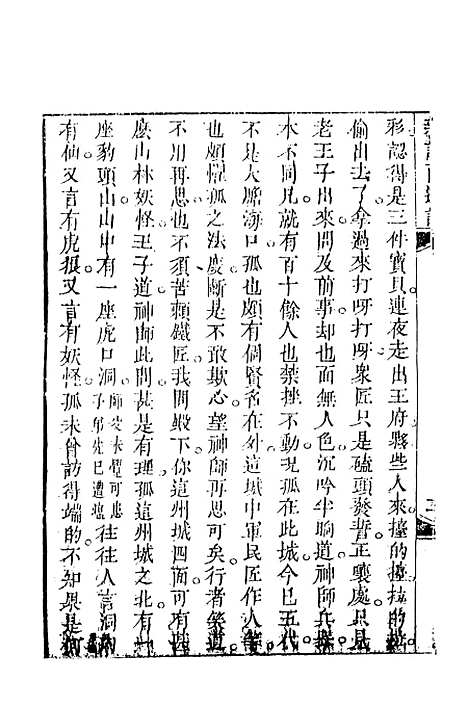 彩認得是三件寶貝連夜走出王府將些人來擡的擡
偷出去了拿過來打呀打呀眾匠只是磕頭發誓正嚷處只見
老王子出來問及前事却也面無人色沉吟半晌道神師兵
本不同凡就有百十餘人也禁挫不動況孤在此城今已五代
不是大膽海口孤也頗有個賢名在外這城中軍民匠作人等
也頗懼孤之法度斷是不敢欺心望神師再思可矣行者笑道
不用再思也不須苦賴鐵匠我問殿下你這州城四面可有
麼山林妖怪王子道神師此問甚是有理孤這州城之北有
座豹頭山山中有一座虎口洞往往人言洞
有仙又言有虎狼又言有妖怪孤未曾訪得端的不知果是